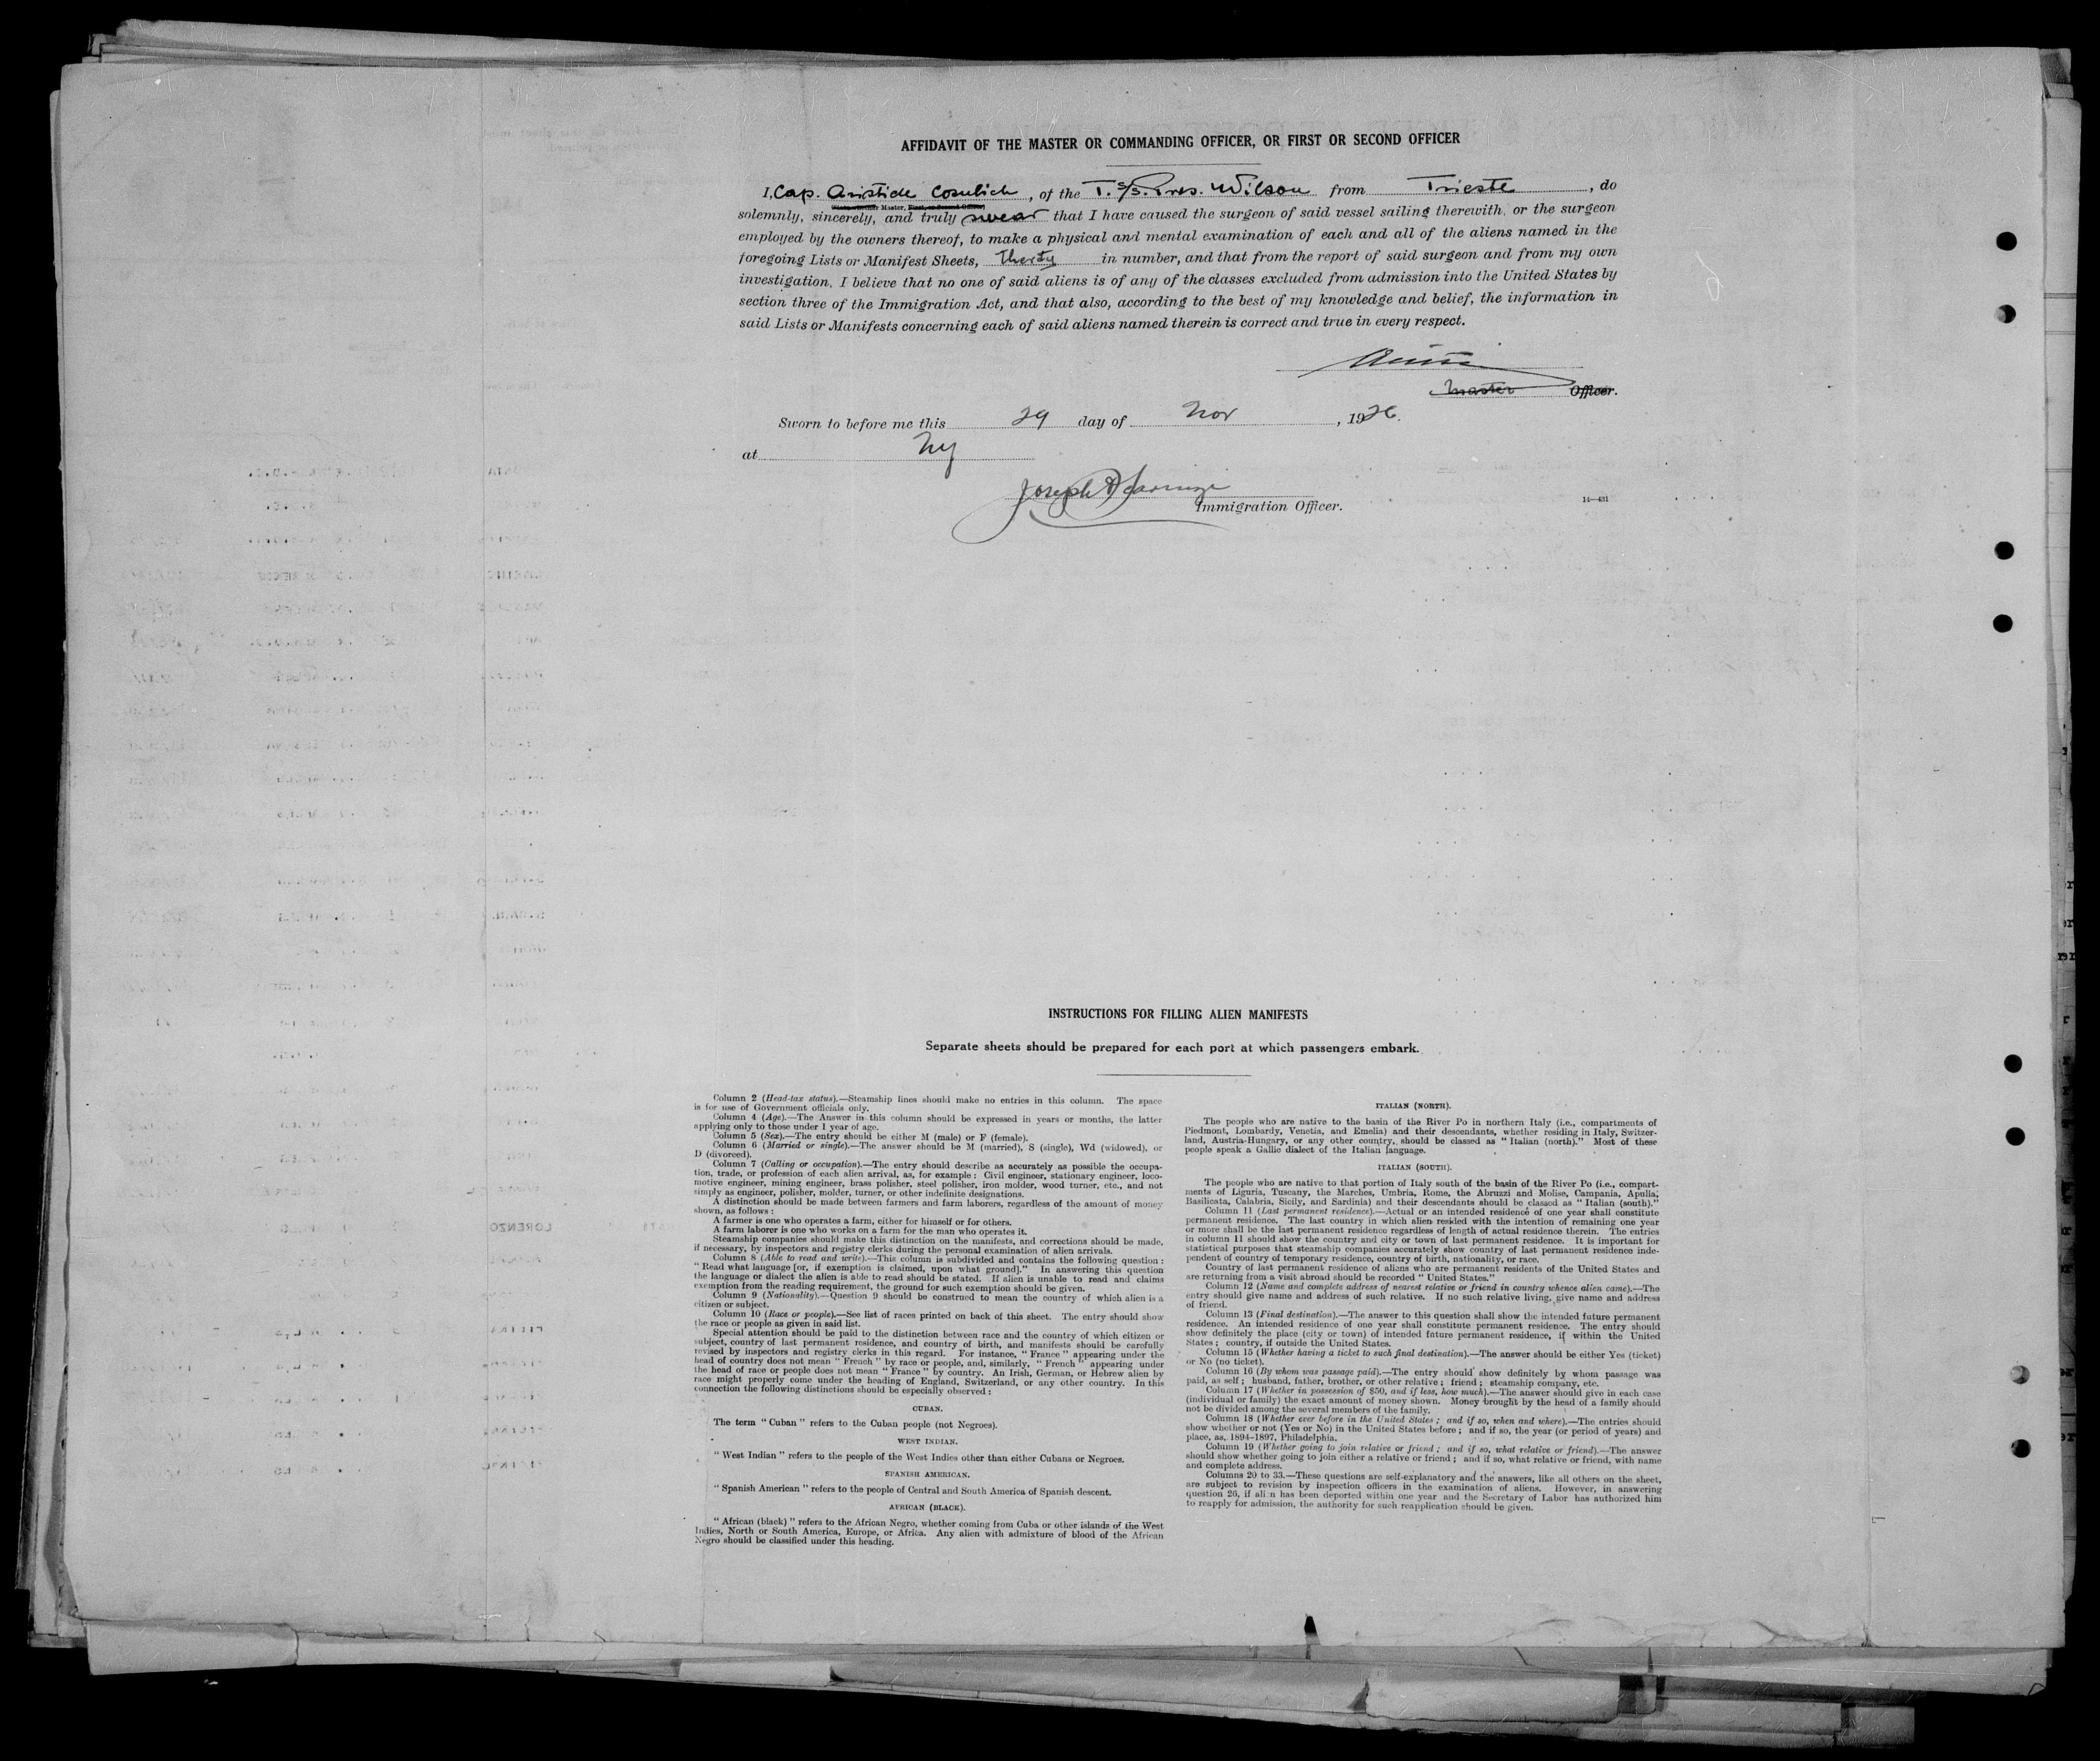 AFFIDAVIT OF THE MASTER OR COMMANDING OFFICER, OR FIRST OR SECOND OFFICER
I, Cap. Aristide Cosulich, of the T. S/S. Pres. Wilson from Trieste, do
Master, First, or Second Officer
solemnly, sincerely, and truly swear that I have caused the surgeon of said vessel sailing therewith, or the surgeon
employed by the owners thereof, to make a physical and mental examination of each and all of the aliens named in the
foregoing Lists or Manifest Sheets, thirty in number, and that from the report of said surgeon and from my own
investigation, I believe that no one of said aliens is of any of the classes excluded from admission into the United States by
section three of the Immigration Act, and that also, according to the best of my knowledge and belief, the information in
said Lists or Manifests concerning each of said aliens named therein is correct and true in every respect.
Master Officer.
Sworn to before me this 29 day of Nov, 1926.
at NY
Joseph
Immigration Officer.
14—431
INSTRUCTIONS FOR FILLING ALIEN MANIFESTS
Separate sheets should be prepared for each port at which passengers embark.
Column 2 (Head-tax status).—Steamship lines should make no entries in this column. The space
is for use of Government officials only.
Column 4 (Age).—The Answer in this column should be expressed in years or months, the latter
applying only to those under 1 year of age.
Column 5 (Sex).—The entry should be either M (male) or F (female).
Column 6 (Married or single).—The answer should be M (married), S (single), Wd (widowed), or
D (divorced).
Column 7 (Calling or occupation).—The entry should describe as accurately as possible the occupa-
tion, trade, or profession of each alien arrival, as, for example: Civil engineer, stationary engineer, loco-
motive engineer, mining engineer, brass polisher, steel polisher, iron molder, wood turner, etc., and not
simply as engineer, polisher, molder, turner, or other indefinite designations.
A distinction should be made between farmers and farm laborers, regardless of the amount of money
shown, as follows:
A farmer is one who operates a farm, either for himself or for others.
A farm laborer is one who works on a farm for the man who operates it.
Steamship companies should make this distinction on the manifests, and corrections should be made,
if necessary, by inspectors and registry clerks during the personal examination of alien arrivals.
Column 8 (Able to read and write).—This column is subdivided and contains the following question:
"Read what language [or, if exemption is claimed, upon what ground]." In answering this question
the language or dialect the alien is able to read should be stated. If alien is unable to read and claims
exemption from the reading requirement, the ground for such exemption should be given.
Column 9 (Nationality).—Question 9 should be construed to mean the country of which alien is a
citizen or subject.
Column 10 (Race or people).—See list of races printed on back of this sheet. The entry should show
the race or people as given in said list.
Special attention should be paid to the distinction between race and the country of which citizen or
subject, country of last permanent residence, and country of birth, and manifests should be carefully
revised by inspectors and registry clerks in this regard. For instance, "France" appearing under the
head of country does not mean "French" by race or people, and, similarly, "French" appearing under
the head of race or people does not mean "France" by country. An Irish, German, or Hebrew alien by
race might properly come under the heading of England, Switzerland, or any other country. In this
connection the following distinctions should be especially observed:
CUBAN.
The term "Cuban" refers to the Cuban people (not Negroes).
WEST INDIAN.
"West Indian" refers to the people of the West Indies other than either Cubans or Negroes.
SPANISH AMERICAN.
"Spanish American" refers to the people of Central and South America of Spanish descent.
AFRICAN (BLACK).
"African (black)" refers to the African Negro, whether coming from Cuba or other islands of the West
Indies, North or South America, Europe, or Africa. Any alien with admixture of blood of the African
Negro should be classified under this heading.
ITALIAN (NORTH).
The people who are native to the basin of the River Po in northern Italy (i.e., compartments of
Piedmont, Lombardy, Venetia, and Emelia) and their descendants, whether residing in Italy, Switzer-
land, Austria-Hungary, or any other country, should be classed as "Italian (north)." Most of these
people speak a Gallic dialect of the Italian language.
ITALIAN (SOUTH).
The people who are native to that portion of Italy south of the basin of the River Po (i.e., compart-
ments of Liguria, Tuscany, the Marches, Umbria, Rome, the Abruzzi and Molise, Campania, Apulia,
Basilicata, Calabria, Sicily, and Sardinia) and their descendants should be classed as "Italian (south)."
Column 11 (Last permanent residence).—Actual or an intended residence of one year shall constitute
permanent residence. The last country in which alien resided with the intention of remaining one year
or more shall be the last permanent residence regardless of length of actual residence therein. The entries
in column 11 should show the country and city or town of last permanent residence. It is important for
statistical purposes that steamship companies accurately show country of last permanent residence inde-
pendent of country of temporary residence, country of birth, nationality, or race.
Country of last permanent residence of aliens who are permanent residents of the United States and
are returning from a visit abroad should be recorded "United States."
Column 12 (Name and complete address of nearest relative or friend in country whence alien came).—The
entry should give name and address of such relative. If no such relative living, give name and address
of friend.
Column 13 (Final destination).—The answer to this question shall show the intended future permanent
residence. An intended residence of one year shall constitute permanent residence. The entry should
show definitely the place (city or town) of intended future permanent residence, if within the United
States; country, if outside the United States.
Column 15 (Whether having a ticket to such final destination).—The answer should be either Yes (ticket)
or No (no ticket).
Column 16 (By whom was passage paid).—The entry should show definitely by whom passage was
paid, as self; husband, father, brother, or other relative; friend; steamship company, etc.
Column 17 (Whether in possession of $50, and if less, how much).—The answer should give in each case
(individual or family) the exact amount of money shown. Money brought by the head of a family should
not be divided among the several members of the family.
Column 18 (Whether ever before in the United States; and if so, when and where).—The entries should
show whether or not (Yes or No) in the United States before; and if so, the year (or period of years) and
place, as, 1894-1897, Philadelphia.
Column 19 (Whether going to join relative or friend; and if so, what relative or friend).—The answer
should show whether going to join either a relative or friend; and if so, what relative or friend, with name
and complete address.
Columns 20 to 33.—These questions are self-explanatory and the answers, like all others on the sheet,
are subject to revision by inspection officers in the examination of aliens. However, in answering
question 26, if alien has been deported within one year and the Secretary of Labor has authorized him
to reapply for admission, the authority for such reapplication should be given.